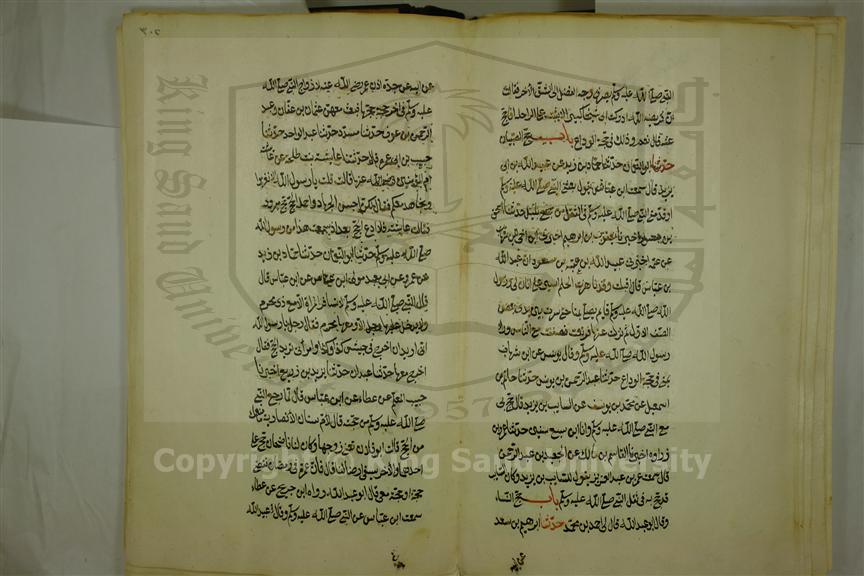 النبي صلى الله عليه وسلم يصرف وجه الفضل الى الشق الآخر فقالت
ان فريضة الله ادركت ابي شيخا كبيرا لا يثبت على الراحلة افاحج
عنه قال نعم وذلك في حجة الوداع باب حج الصبيان
حدثنا ابو النعمان حدثنا حماد بن زيد عن عبيد الله بن ابي
يزيد قال سمعت ابن عباس يقول بعثني النبي صلى الله عليه وسلم
او قدمني النبي صلى الله عليه وسلم في الثقل من جمع بليل حدثنا اسحق
يعقوب بن ابرهيم ابن اخي ابن شهاب
عن عمه اخبرني عبيد الله بن عبد الله بن عتبة بن مسعود ان عبد الله
بن عباس قال اقبلت وقد ناهزت الحلم اسير على اتان لي ورسول
الله صلى الله عليه وسلم قائم يصلي بمنى حتى سرت بين يدي بعض
الصف الاول ثم نزلت عنها فرتعت فصففت مع الناس وراء
رسول الله صلى الله عليه وسلم وقال يونس عن ابن شهاب
بمنى في حجة الوداع حدثنا عبد الرحمن بن يونس حدثنا حاتم بن
اسمعيل عن محمد بن يوسف عن السايب بن يزيد قال حج بي
مع النبي صلى الله عليه وسلم وانا ابن سبع سنين حدثنا عمرو بن
زرارة اخبرنا القاسم بن مالك عن الجعيد بن عبد الرحمن
قال سمعت عمر بن عبد العزيز يقول للسايب بن يزيد وكان
قد حج به في ثقل النبي صلى الله عليه وسلم باب حج النساء
وقال ابو عبد الله قال لي احمد بن محمد حدثنا ابرهيم بن سعد
عن ابيه عن جده اذن عمر رضي الله عنه لازواج النبي صلى الله
عليه وسلم في آخر حجة حجها فبعث معهن عثمان بن عفان وعبد
الرحمن بن عوف حدثنا مسدد حدثنا عبد الواحد حدثنا
حبيب بن ابي عمرة قال حدثتنا عايشة بنت طلحة عن عايشة
ام المؤمنين رضي الله عنها قالت قلت يا رسول الله الا نغزوا
ونجاهد معكم فقال لكن احسن الجهاد واجمله الحج حج مبرور
فقالت عايشة فلا ادع الحج بعد اذ سمعت هذا من رسول الله
صلى الله عليه وسلم حدثنا ابو النعمان حدثنا حماد بن زيد
عن عمرو عن ابي معبد مولى ابن عباس عن ابن عباس قال
قال النبي صلى الله عليه وسلم لا تسافر المراة الا مع ذي محرم
ولا يدخل عليها رجل الا ومعها محرم فقال رجل يا رسول الله
اني اريد ان اخرج في جيش كذا وكذا وامراتي تريد الحج فقال
اخرج معها حدثنا عبدان حدثنا يزيد بن زريع اخبرنا
حبيب المعلم عن عطاء عن ابن عباس قال لما رجع النبي
صلى الله عليه وسلم من حجته قال لام سنان الانصارية ما منعك
من الحج قالت ابو فلان تعني زوجها وكان له ناضحان حج على
احدهما والآخر يسقي ارضا لنا قال فان عمرة في رمضان تقضي
حجة او حجة معي قال ابو عبد الله رواه ابن جريج عن عطاء
سمعت ابن عباس عن النبي صلى الله عليه وسلم وقال عبيد الله
King Saud University
1957
Copyright © King Saud University